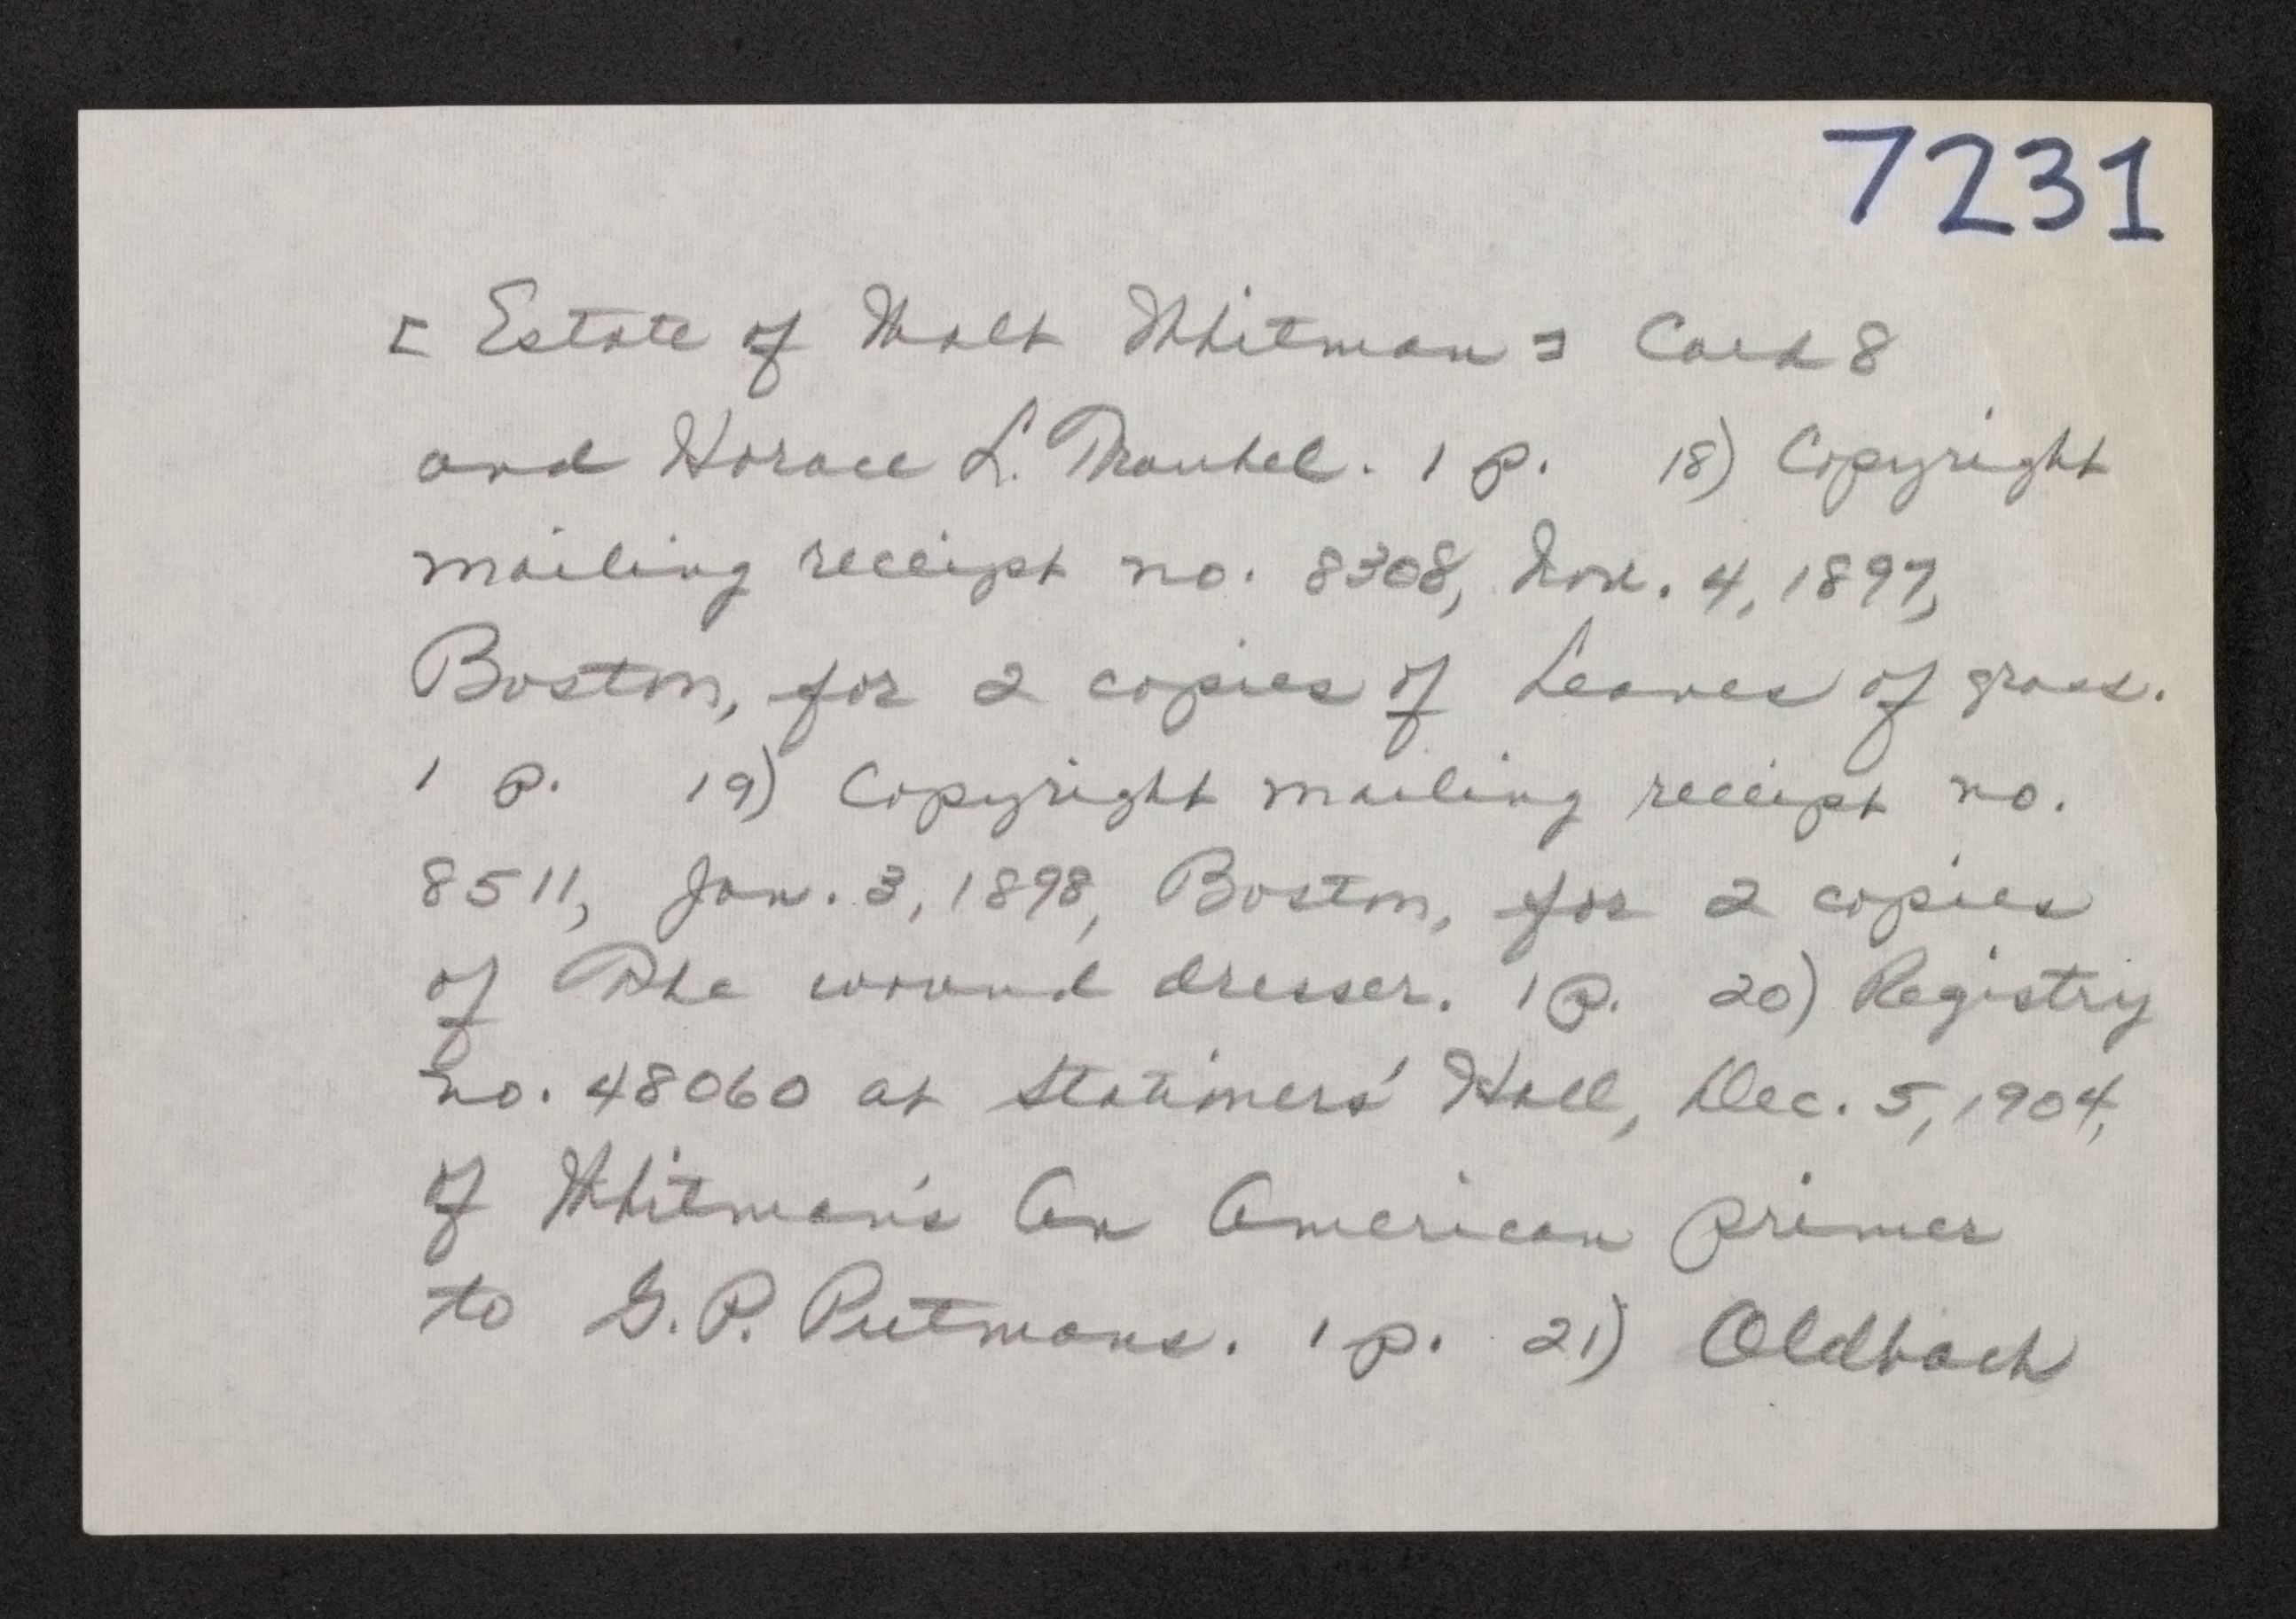 7231
[Estate of Walt Whitman] Card 8
and Horace L. Traubel. 1 p. 18) Copyright
mailing receipt no. 8308, Nov. 4, 1897,
Boston, for 2 copies of Leaves of grass.
1 p. 19) Copyright mailing receipt no.
8511, Jan. 3, 1898, Boston, for 2 copies
of The wound dresser. 1 p. 20) Registry
no. 48060 at Stationers' Hall, Dec. 5, 1904,
of Whitman's An American primer
to G. P. Putmans. 1 p. 21) Oldbach